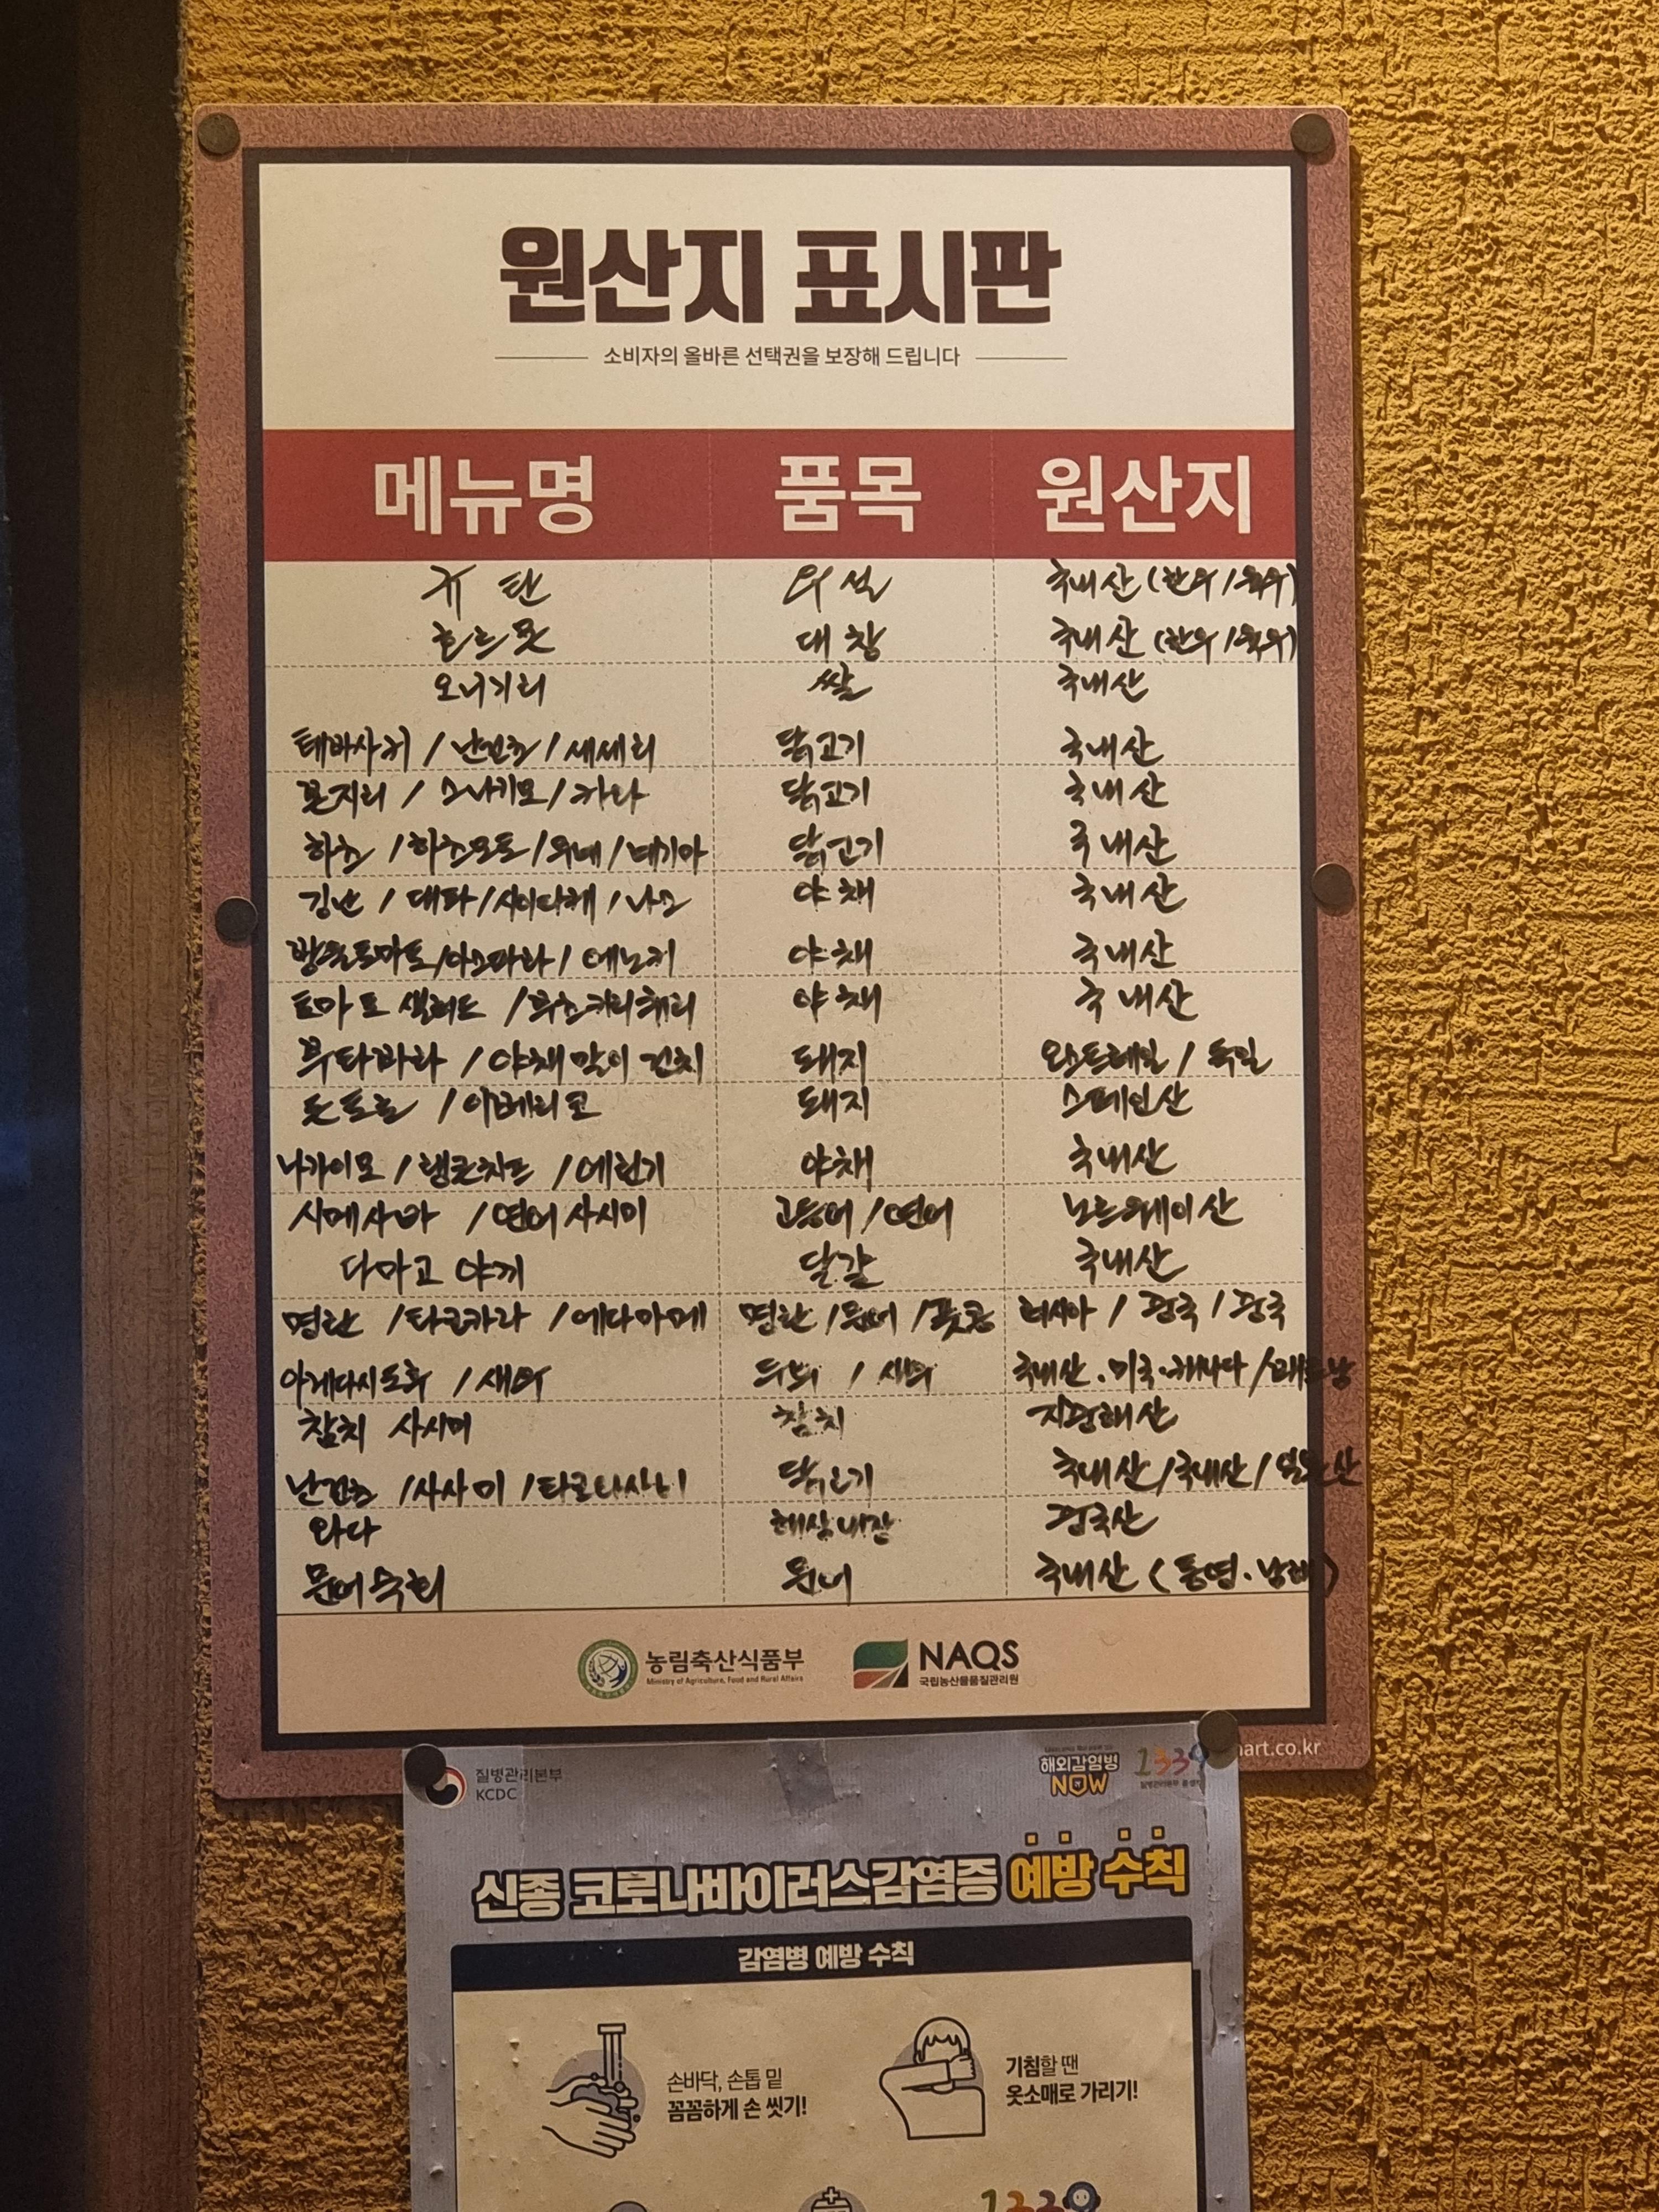 원산지 표시판
소비자의 올바른 선택권을 보장해 드립니다
메뉴명 품목 원산지
규탄 우설 국내산 (한우/육우)
호르몬 대창 국내산 (한우/육우)
오니기리 쌀 국내산
테바사키 / 난코츠 / 세세리 닭고기 국내산
본지리 / 스나기모 / 카와 닭고기 국내산
하츠 / 하츠모토 / 무네 / 네기마 닭고기 국내산
긴난 / 대파 / 시이타케 / 나스 야채 국내산
방울토마토 / 아스파라 / 에노키 야채 국내산
토마토 샐러드 / 야채 국내산
부타바라 / 야채말이 꼬치 돼지 오스트레일 / 독일
돈토로 / 이베리코 돼지 스페인산
나가이모 / 렌콘치프 / 에린기 야채 국내산
시메사바 / 연어 사시미 고등어 / 연어 노르웨이산
다마고 야끼 달걀 국내산
명란 / 타코카라 / 에다마메 명란 / 문어 / 풋콩 러시아 / 중국 / 중국
아게다시도후 / 새우 두부 / 새우 국내산 . 미국 . 캐나다 / 베트남
참치 사시미 참치 지중해산
난코츠 / 사사미 / 닭고기 국내산 / 국내산 /
와다 해삼내장 중국산
문어숙회 문어 국내산 (통영 . 남해)
농림축산식품부
Ministry of Agriculture, Food and Rural Affairs
NAQS
국립농산물품질관리원
art.co.kr
질병관리본부
KCDC
해외감염병
NOW
1339
신종 코로나바이러스감염증 예방 수칙
감염병 예방 수칙
손바닥, 손톱 밑
꼼꼼하게 손 씻기!
기침할 땐
옷소매로 가리기!
1339